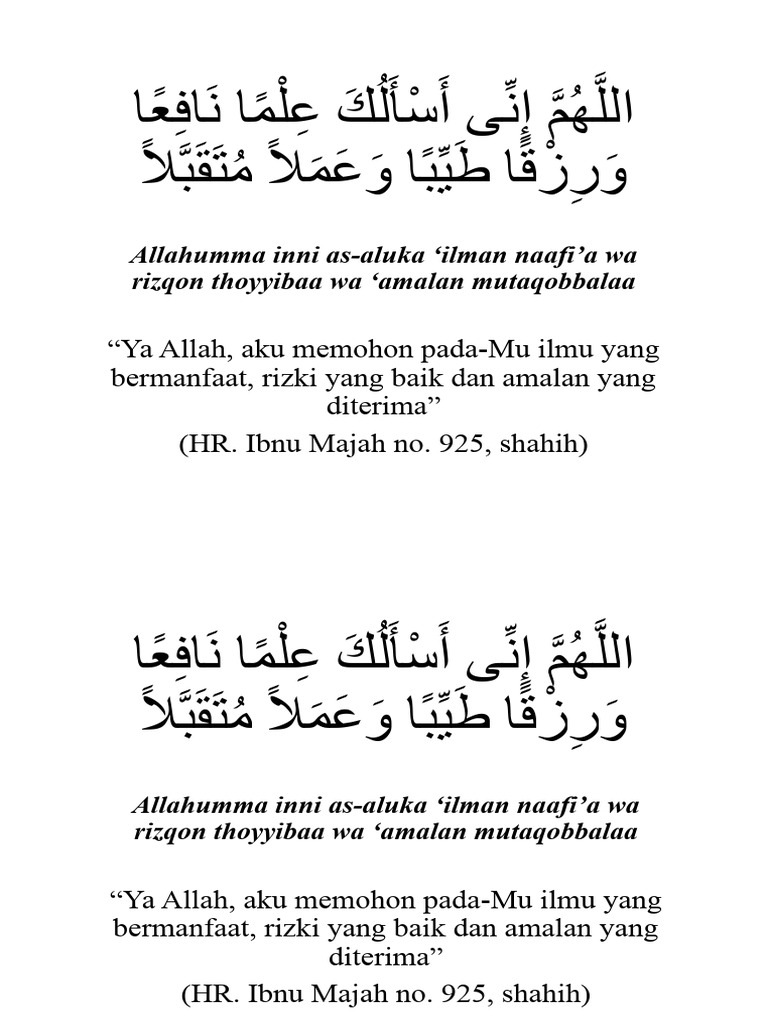 اللَّهُمَّ إِنِّى أَسْأَلُكَ عِلْمًا نَافِعًا
وَرِزْقًا طَيِّبًا وَعَمَلاً مُتَقَبَّلاً
Allahumma inni as-aluka ‘ilman naafi’a wa
rizqon thoyyibaa wa ‘amalan mutaqobbalaa
“Ya Allah, aku memohon pada-Mu ilmu yang
bermanfaat, rizki yang baik dan amalan yang
diterima”
(HR. Ibnu Majah no. 925, shahih)
اللَّهُمَّ إِنِّى أَسْأَلُكَ عِلْمًا نَافِعًا
وَرِزْقًا طَيِّبًا وَعَمَلاً مُتَقَبَّلاً
Allahumma inni as-aluka ‘ilman naafi’a wa
rizqon thoyyibaa wa ‘amalan mutaqobbalaa
“Ya Allah, aku memohon pada-Mu ilmu yang
bermanfaat, rizki yang baik dan amalan yang
diterima”
(HR. Ibnu Majah no. 925, shahih)